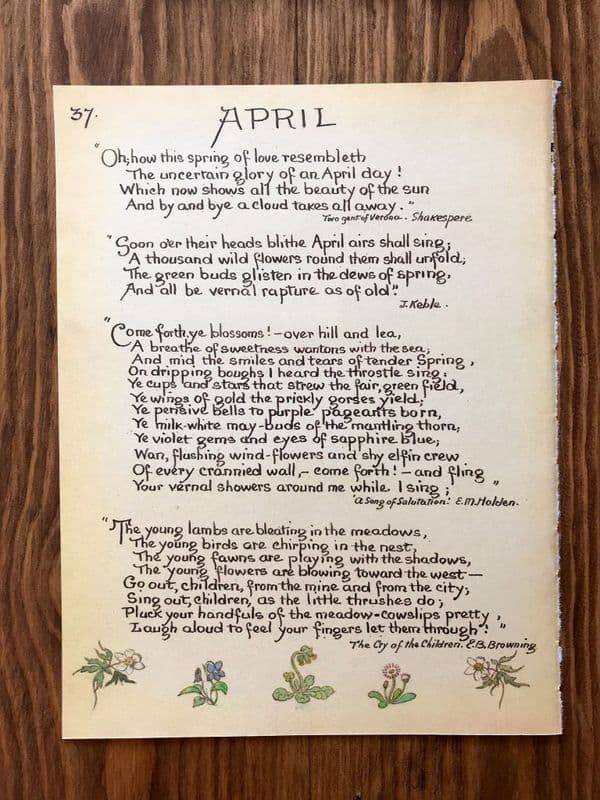 37.
APRIL
"Oh, how this spring of love resembleth
The uncertain glory of an April day!
Which now shows all the beauty of the sun
And by and bye a cloud takes all away."
Two gent of Verona. Shakespere
"Soon o'er their heads blithe April airs shall sing;
A thousand wild flowers round them shall unfold;
The green buds glisten in the dews of spring,
And all be vernal rapture as of old."
J. Keble.
"Come forth, ye blossoms! – over hill and lea,
A breathe of sweetness wantons with the sea;
And mid the smiles and tears of tender Spring,
On dripping boughs I heard the throstle sing;
Ye cups and stars that strew the fair, green field,
Ye wings of gold the prickly gorses yield;
Ye pensive bells to purple pageants born,
Ye milk-white may-buds of the mantling thorn;
Ye violet gems and eyes of sapphire blue;
Wan, flushing wind-flowers and shy elfin crew
Of every crannied wall, – come forth! – and fling
Your vernal showers around me while I sing; "
'a Song of Salutation.' E.M.Holden.
"The young lambs are bleating in the meadows,
The young birds are chirping in the nest,
The young fawns are playing with the shadows,
The young flowers are blowing toward the west —
Go out, children, from the mine and from the city;
Sing out, children, as the little thrushes do;
Pluck your handfuls of the meadow-cowslips pretty,
Laugh aloud to feel your fingers let them through! "
The Cry of the Children. E.B.Browning